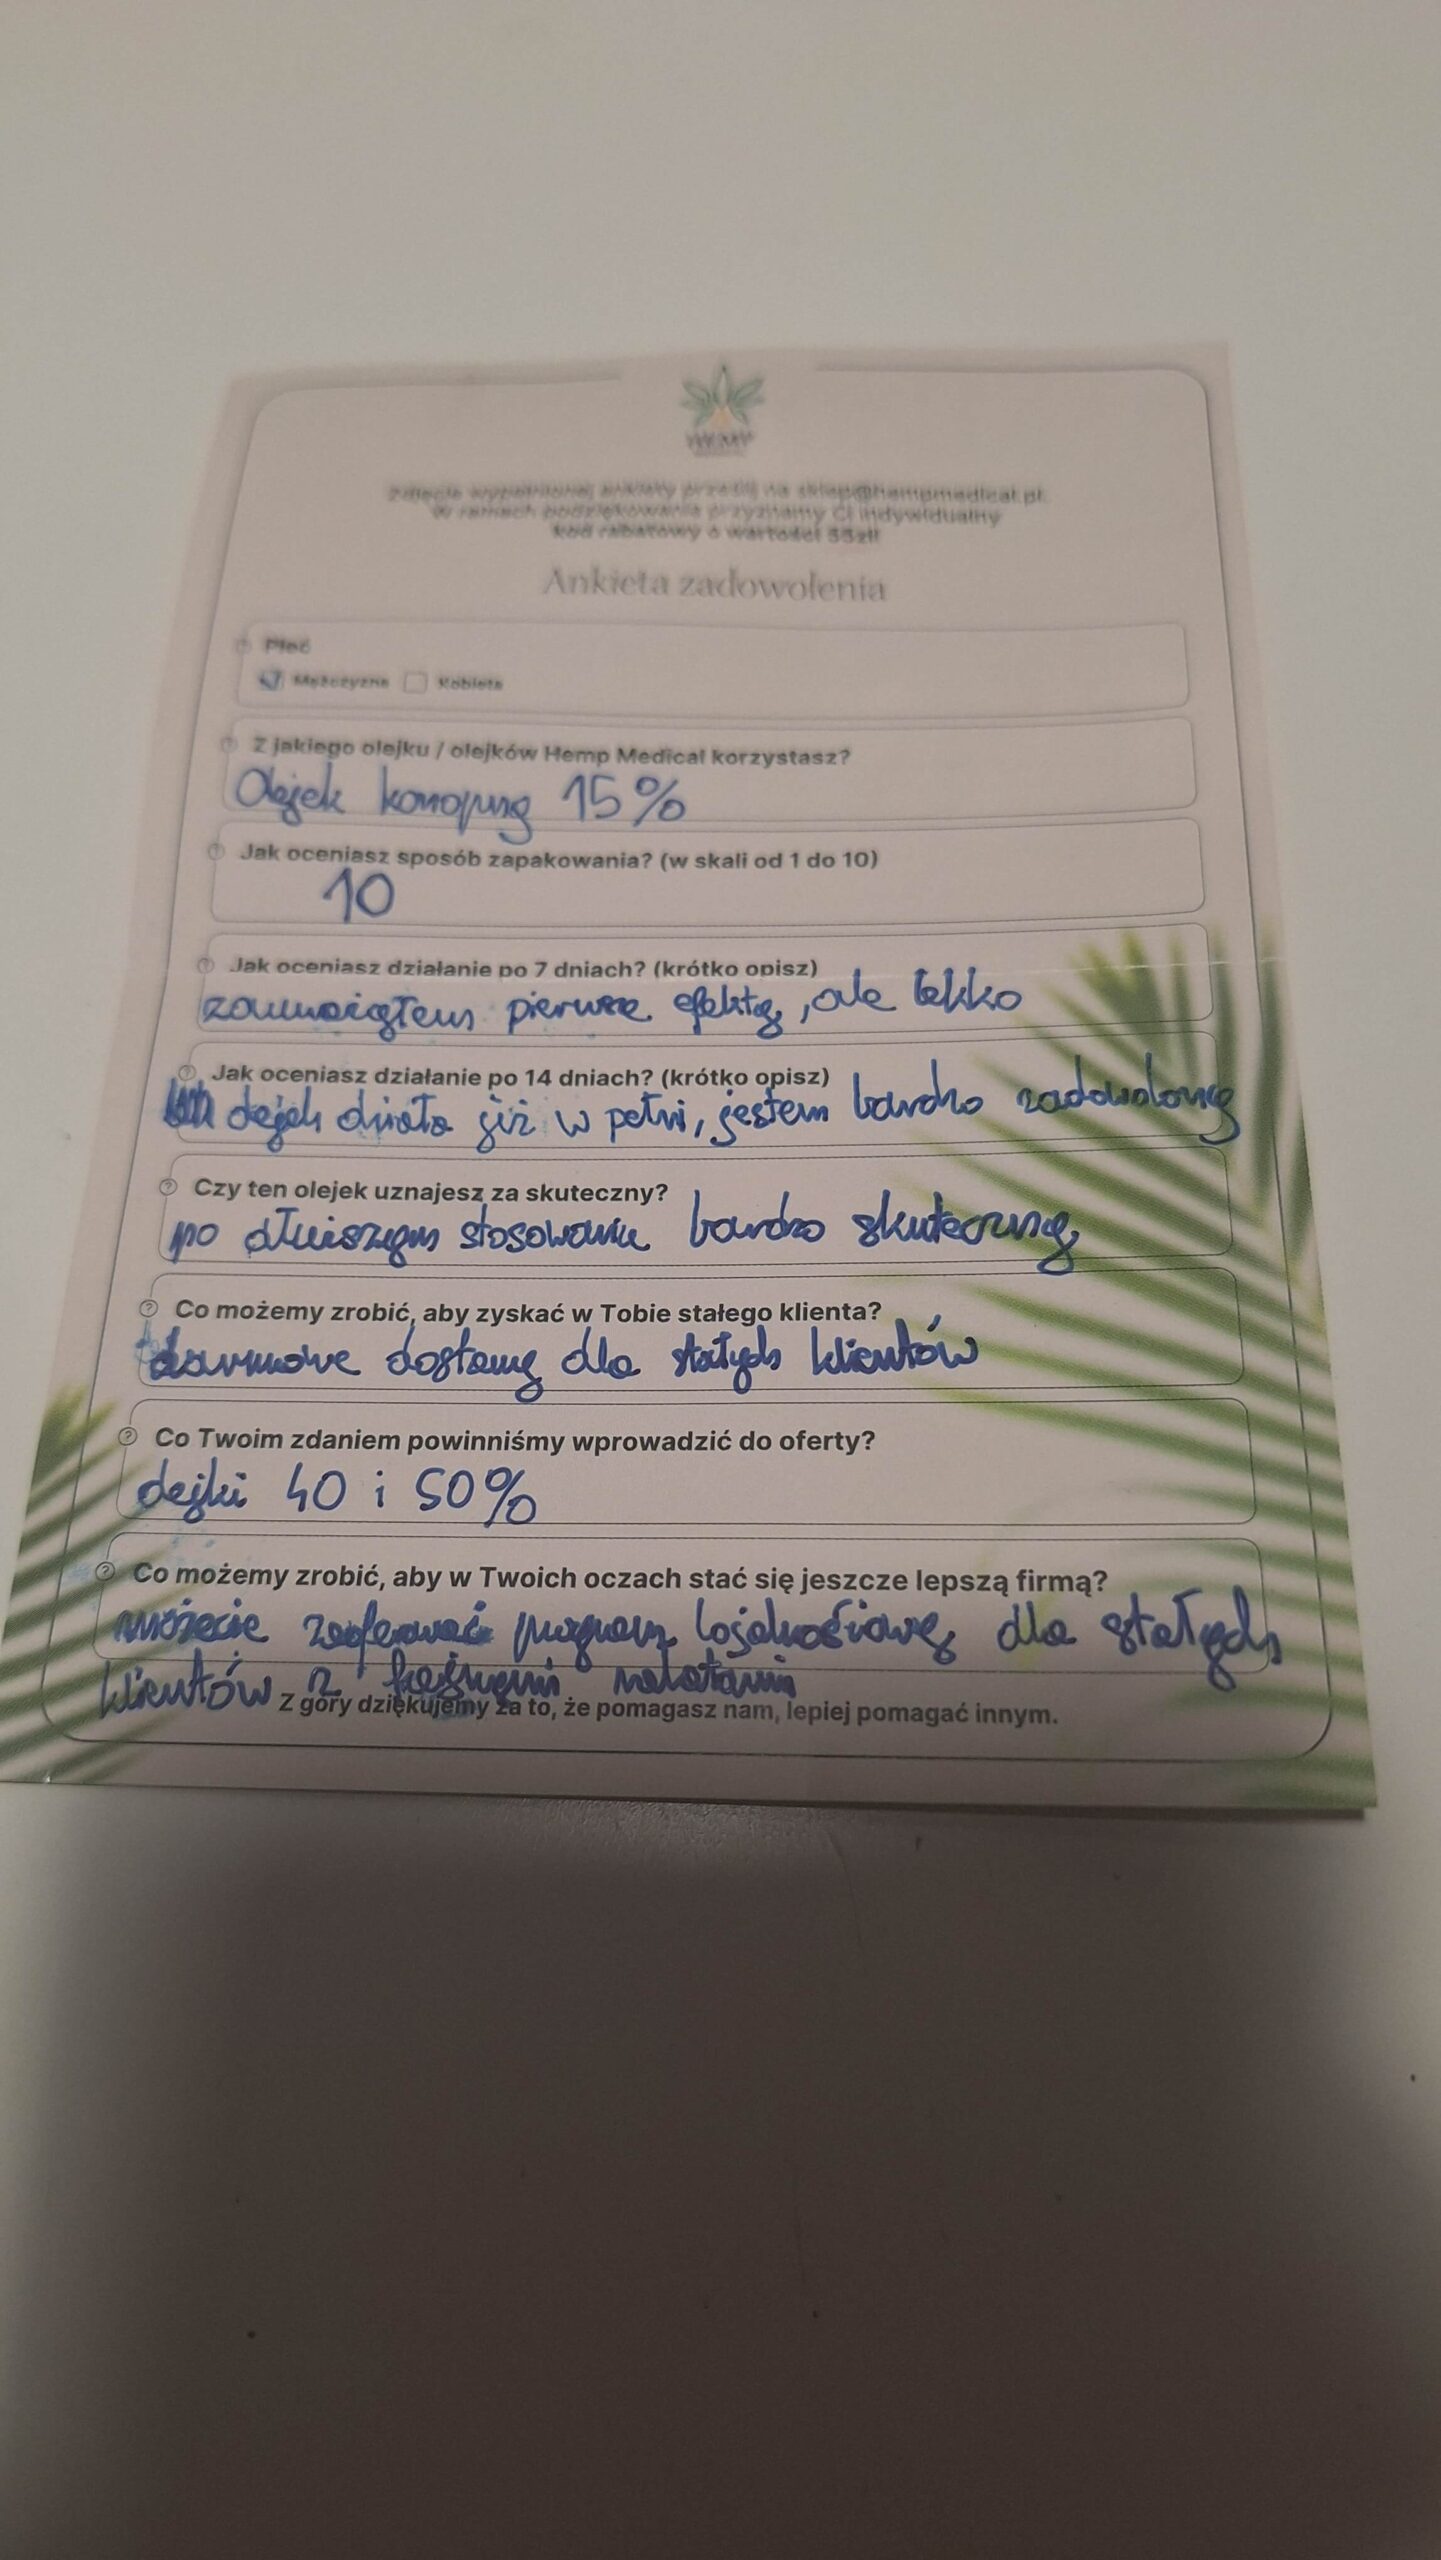 HEMP
Zdjęcie wypełnionej ankiety prześlij na sklep@hempmedical.pl.
W ramach podziękowania przyznamy Ci indywidualny
kod rabatowy o wartości 55zł!
Ankieta zadowolenia
Płeć
Mężczyzna Kobieta
Z jakiego olejku / olejków Hemp Medical korzystasz?
Olejek konopny 15%
Jak oceniasz sposób zapakowania? (w skali od 1 do 10)
10
Jak oceniasz działanie po 7 dniach? (krótko opisz)
zauważyłem pierwsze efekty, ale lekko
Jak oceniasz działanie po 14 dniach? (krótko opisz)
olejek działa już w pełni, jestem bardzo zadowolony
Czy ten olejek uznajesz za skuteczny?
po dłuższym stosowaniu bardzo skuteczny
Co możemy zrobić, aby zyskać w Tobie stałego klienta?
darmowe dostawy dla stałych klientów
Co Twoim zdaniem powinniśmy wprowadzić do oferty?
olejki 40 i 50%
Co możemy zrobić, aby w Twoich oczach stać się jeszcze lepszą firmą?
możecie zaoferować program lojalnościowy dla stałych
klientów z
Z góry dziękujemy za to, że pomagasz nam, lepiej pomagać innym.